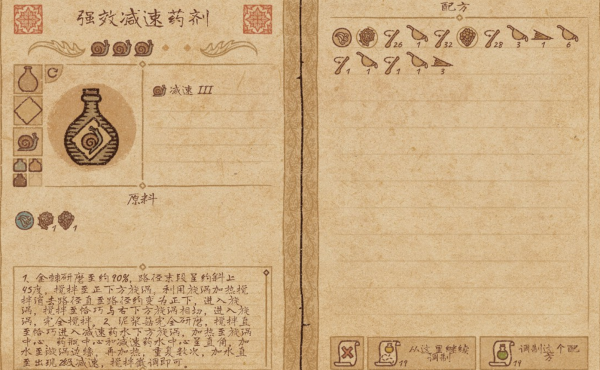 强效减速药剂
减速 III
原料
1 1
1. 金棘研磨至约90%, 路径末段呈约斜上
45度, 搅拌至正下方旋涡, 利用旋涡加热搅
拌缩去路径直至路径约变为正下, 进入旋
涡, 搅拌至恰巧与右下方旋涡相切, 进入旋
涡, 完全搅拌。2. 泥浆菇完全研磨, 搅拌直
至恰巧进入减速药水下方旋涡, 加热至旋涡
中心, 药瓶中心和减速药水中心呈直角, 加
水至漩涡边缘, 再加热, 重复数次, 加水直
至出现2级减速, 搅拌微调即可。
配方
26 1 32 28 3 1 6
1 1 1 1 3
从这里继续
调制
19
调制这个配
方
19